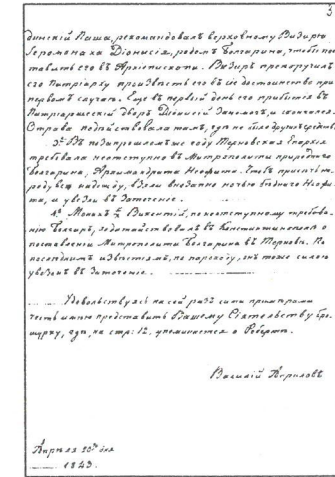 5
динскій Паша, рекомендовалъ верховному Визирю
Іеромонаха Діонисія, родомъ Болгарина, чтобы пос-
тавить его въ Архіепископы. Визирь препоручилъ
его Патріарху произвесть его въ сіе достоинство при
первомъ случаѣ. Еще въ первый день его прибытія въ
Патріаршескій дворъ Діонисій занемогъ, и скончался.
Отрава подѣйствовала тамъ, гдѣ не было другихъ средствъ.
3.е Въ позапрошломъ году Терновская Епархія
требовала неотступно въ Митрополиты природнаго
Болгарина, Архимандрита Неофита. Чтобъ пресѣчь на-
роду всю надежду, взяли внезапно ночью бѣднаго Неофи-
та, и увезли въ заточеніе.
4.е Монахъ Викентій, по неотступному требова-
нію Болгаръ, ходатайствовалъ въ Константинополѣ о
поставленіи Митрополита Болгарина въ Терновъ. По
последнимъ извѣстіямъ, на пароходѣ, онъ тоже силою
увезенъ въ заточеніе.
Удовольствуясь на сей разъ сими примѣрами
честь имѣю представить Вашему Сіятельству бро-
шюрку, гдѣ, на стр: 12, упоминается о Робертѣ.
Василій Априловъ
Апрѣля 20го дня
1843.